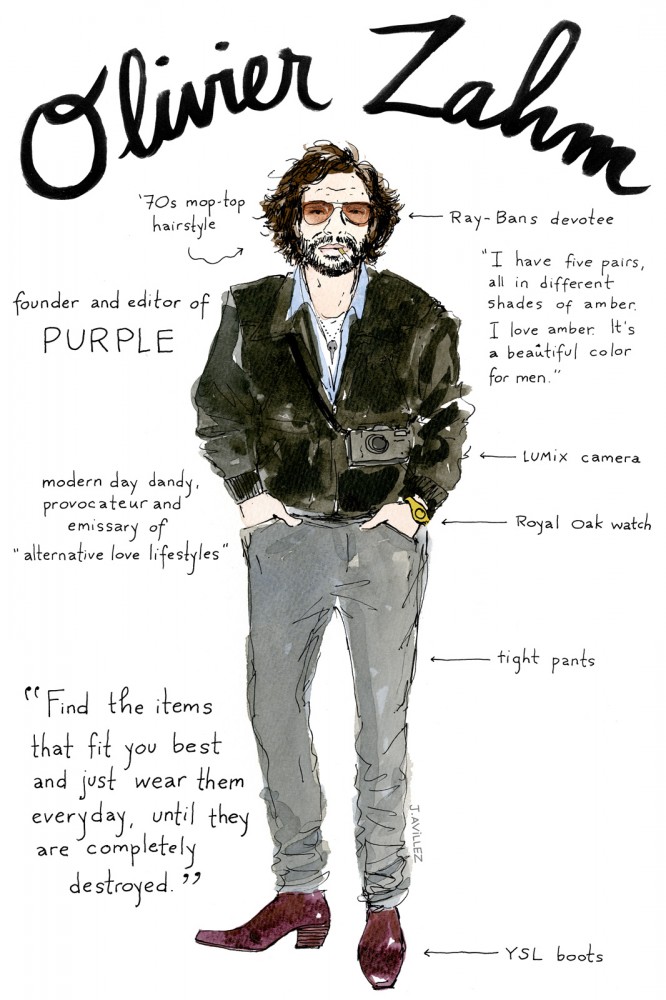 Olivier Zahm
'70s mop-top
hairstyle
Ray-Bans devotee
"I have five pairs,
all in different
shades of amber.
I love amber. It's
a beautiful color
for men."
founder and editor of
PURPLE
LUMIX camera
modern day dandy,
provocateur and
emissary of
"alternative love lifestyles"
Royal Oak watch
tight pants
"Find the items
that fit you best
and just wear them
everyday, until they
are completely
destroyed."
J. AVILLEZ
YSL boots